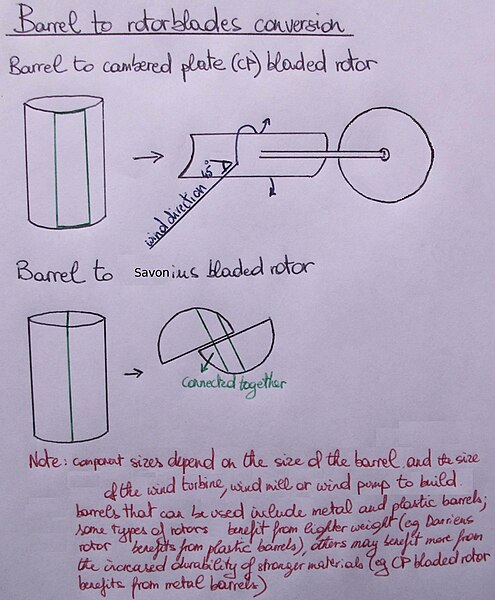 Barrel to rotorblades conversion
Barrel to cambered plate (CP) bladed rotor
45°
wind direction
Barrel to Savonius bladed rotor
connected together
Note: component sizes depend on the size of the barrel and the size
of the wind turbine, wind mill or wind pump to build.
barrels that can be used include metal and plastic barrels;
some types of rotors benefit from lighter weight (eg Darrieus
rotor benefits from plastic barrels), others may benefit more from
the increased durability of stronger materials (eg CP bladed rotor
benefits from metal barrels)